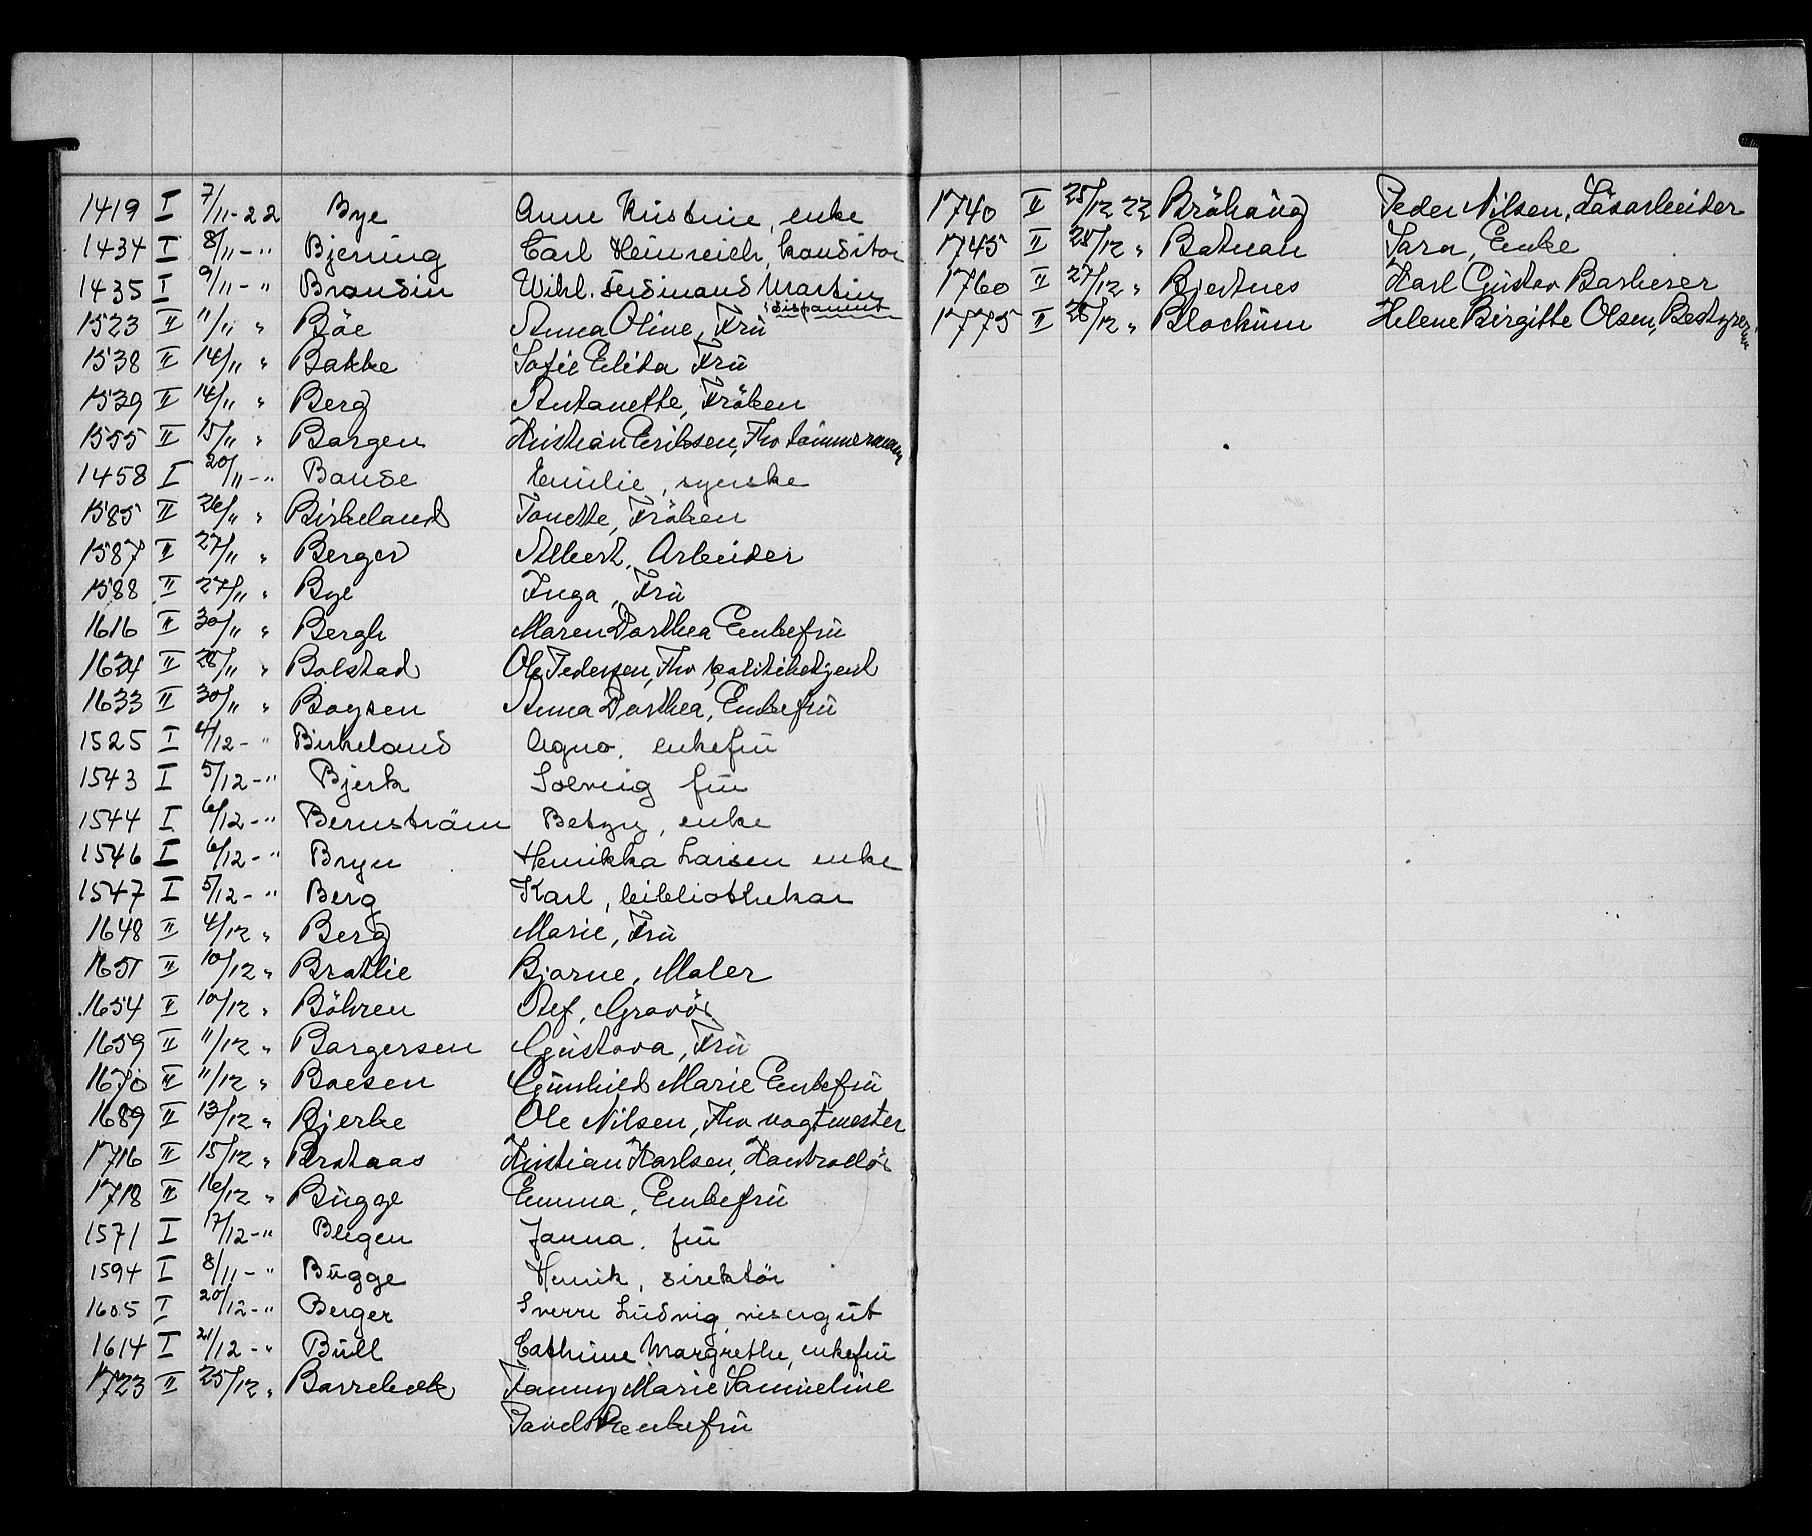 1419 I 7/11-22 Bye Anne Kristine, enke
1434 I 8/11-" Bjerring Carl Heinreich, konditor
1435 I 9/11-" Brandin Wihl. Ferdinand Martin
disponent
1523 II 11/11 " Böe Anna Oline, Frü
1538 II 14/11 " Bakke Sofie Elida Frü
1539 II 14/11 " Berg Antonette, Fröken
1555 II 15/11 " Borgen Kristian Eriksen, Fhv tömmermann
1458 I 20/11-" Bonde Emilie, syerske
1585 II 26/11 " Birkeland Tonette, Fröken
1587 II 27/11 " Berger Albert, Arbeider
1588 II 27/11 " Bye Inga, Frü
1616 II 30/11 " Bergh Maren Dorthea Enkefrü
1624 II 28/11 " Bolstad Ole Pedersen, Fhv politibetjent
1633 II 30/11 " Boysen Anna Dorthea, Enkefrü
1525 I 4/12-" Birkeland Agna, enkefrü
1543 I 5/12-" Bjerk Solveig frü
1544 I 6/12-" Bernström Betzy, enke
1546 I 6/12-" Bryn Henrikka Larsen enke
1547 I 5/12-" Berg Karl, bibliothekar
1648 II 4/12 " Berg Marie, Frü
1651 II 10/12 " Bratlie Bjarne, Maler
1654 II 10/12 " Böhren Olef, Gravör
1659 II 11/12 " Borgersen Güstava, Frü
1670 II 11/12 " Boesen Günhild Marie Enkefrü
1689 II 13/12 " Bjerke Ole Nilsen, Fhv vagtmester
1716 II 15/12 " Brataas Kristian Karlsen, Kontrollör
1718 II 16/12 " Bügge Emma, Enkefrü
1571 I 17/12-" Blegen Janna, frü
1594 I 8/11-" Bügge Henrik, direktör
1605 I 20/12-" Berger Sverre Ludvig, visergüt
1614 I 21/12-" Büll Cathrine Margrethe, enkefrü
1723 II 25/12 " Barrebek Fanny Marie Samueline
enkefrü
1740 II 25/12 22 Bröhaüg Peder Nilsen, Lösarbeider
1745 II 28/12 " Batman Sara, Enke
1760 II 27/12 " Bjertnes Karl Güstav Barberer
1775 II 28/12 " Blochüm Helene Birgitte Olsen, Bestyrerinne